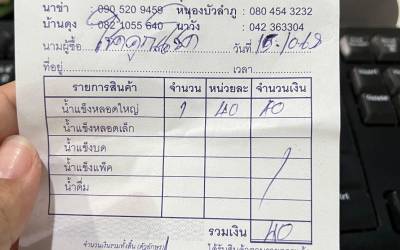 นาข่า : 090 520 9459 หนองบัวลำภู : 080 454 3232
บ้านดุง : 082 1055 640 นาวัง : 042 363304
นามผู้ซื้อ วันที่ 15/10/68
ที่อยู่ เวลา
รายการสินค้า จำนวน หน่วยละ จำนวนเงิน
น้ำแข็งหลอดใหญ่ 1 40 40
น้ำแข็งหลอดเล็ก
น้ำแข็งบด
น้ำแข็งแพ็ค
น้ำดื่ม
รวมเงิน 40
จำนวนเงินรวมทั้งสิ้น (ตัวอักษร)